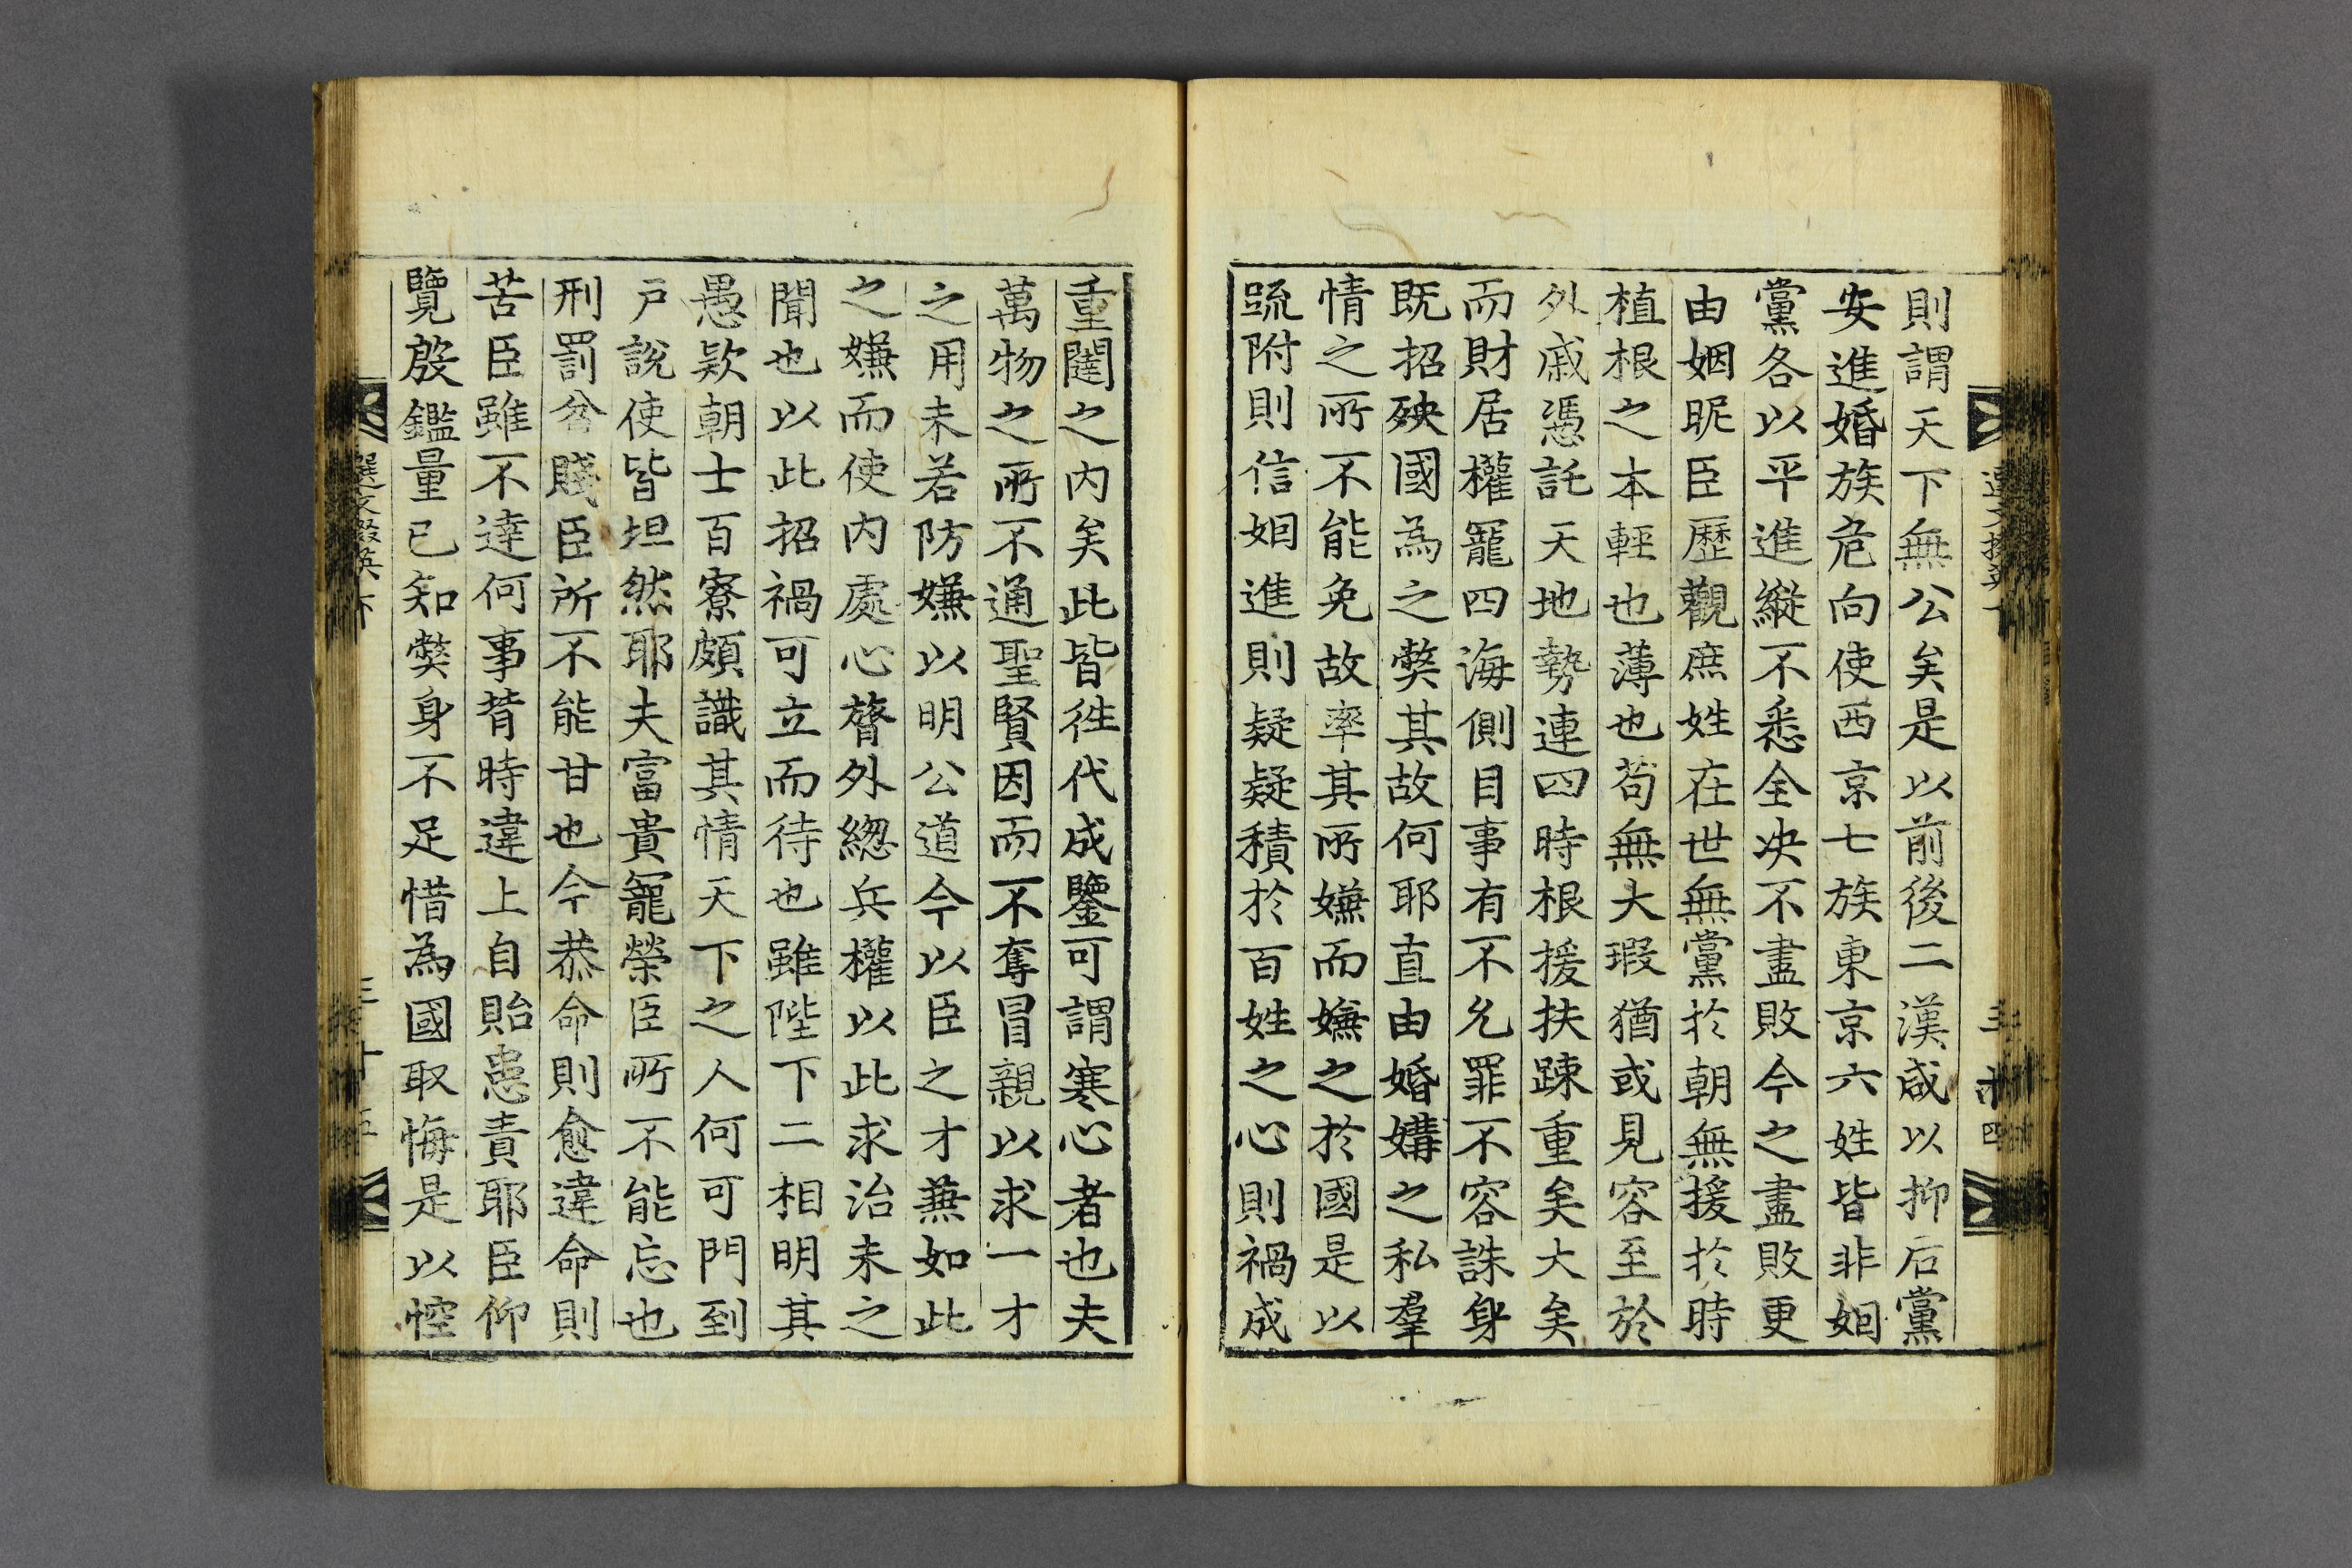 則謂天下無公矣是以前後二漢咸以抑后黨
安進婚族危向使西京七族東京六姓皆非姻
黨各以平進縱不悉全决不盡敗今之盡敗更
由姻昵臣歷觀庶姓在世無黨於朝無援於時
植根之本輕也薄也苟無大瑕猶或見容至於
外戚憑託天地勢連四時根援扶踈重矣大矣
而財居權寵四海側目事有不允罪不容誅身
既招殃國為之弊其故何耶直由婚媾之私羣
情之所不能免故率其所嫌而嫌之於國是以
疏附則信姻進則疑疑積於百姓之心則禍成
重闥之内矣此皆徃代成鑒可謂寒心者也夫
萬物之所不通聖賢因而不奪冒親以求一才
之用未若防嫌以明公道今以臣之才兼如此
之嫌而使内處心膂外緫兵權以此求治未之
聞也以此招禍可立而待也雖陛下二相明其
愚欵朝士百寮頗識其情天下之人何可門到
戶說使皆坦然耶夫富貴寵榮臣所不能忘也
刑罰貧賤臣所不能甘也今恭命則愈違命則
苦臣雖不達何事背時違上自貽患責耶臣仰
覽殷鑑量已知弊身不足惜為國取悔是以悾
選文掇英下
三十五